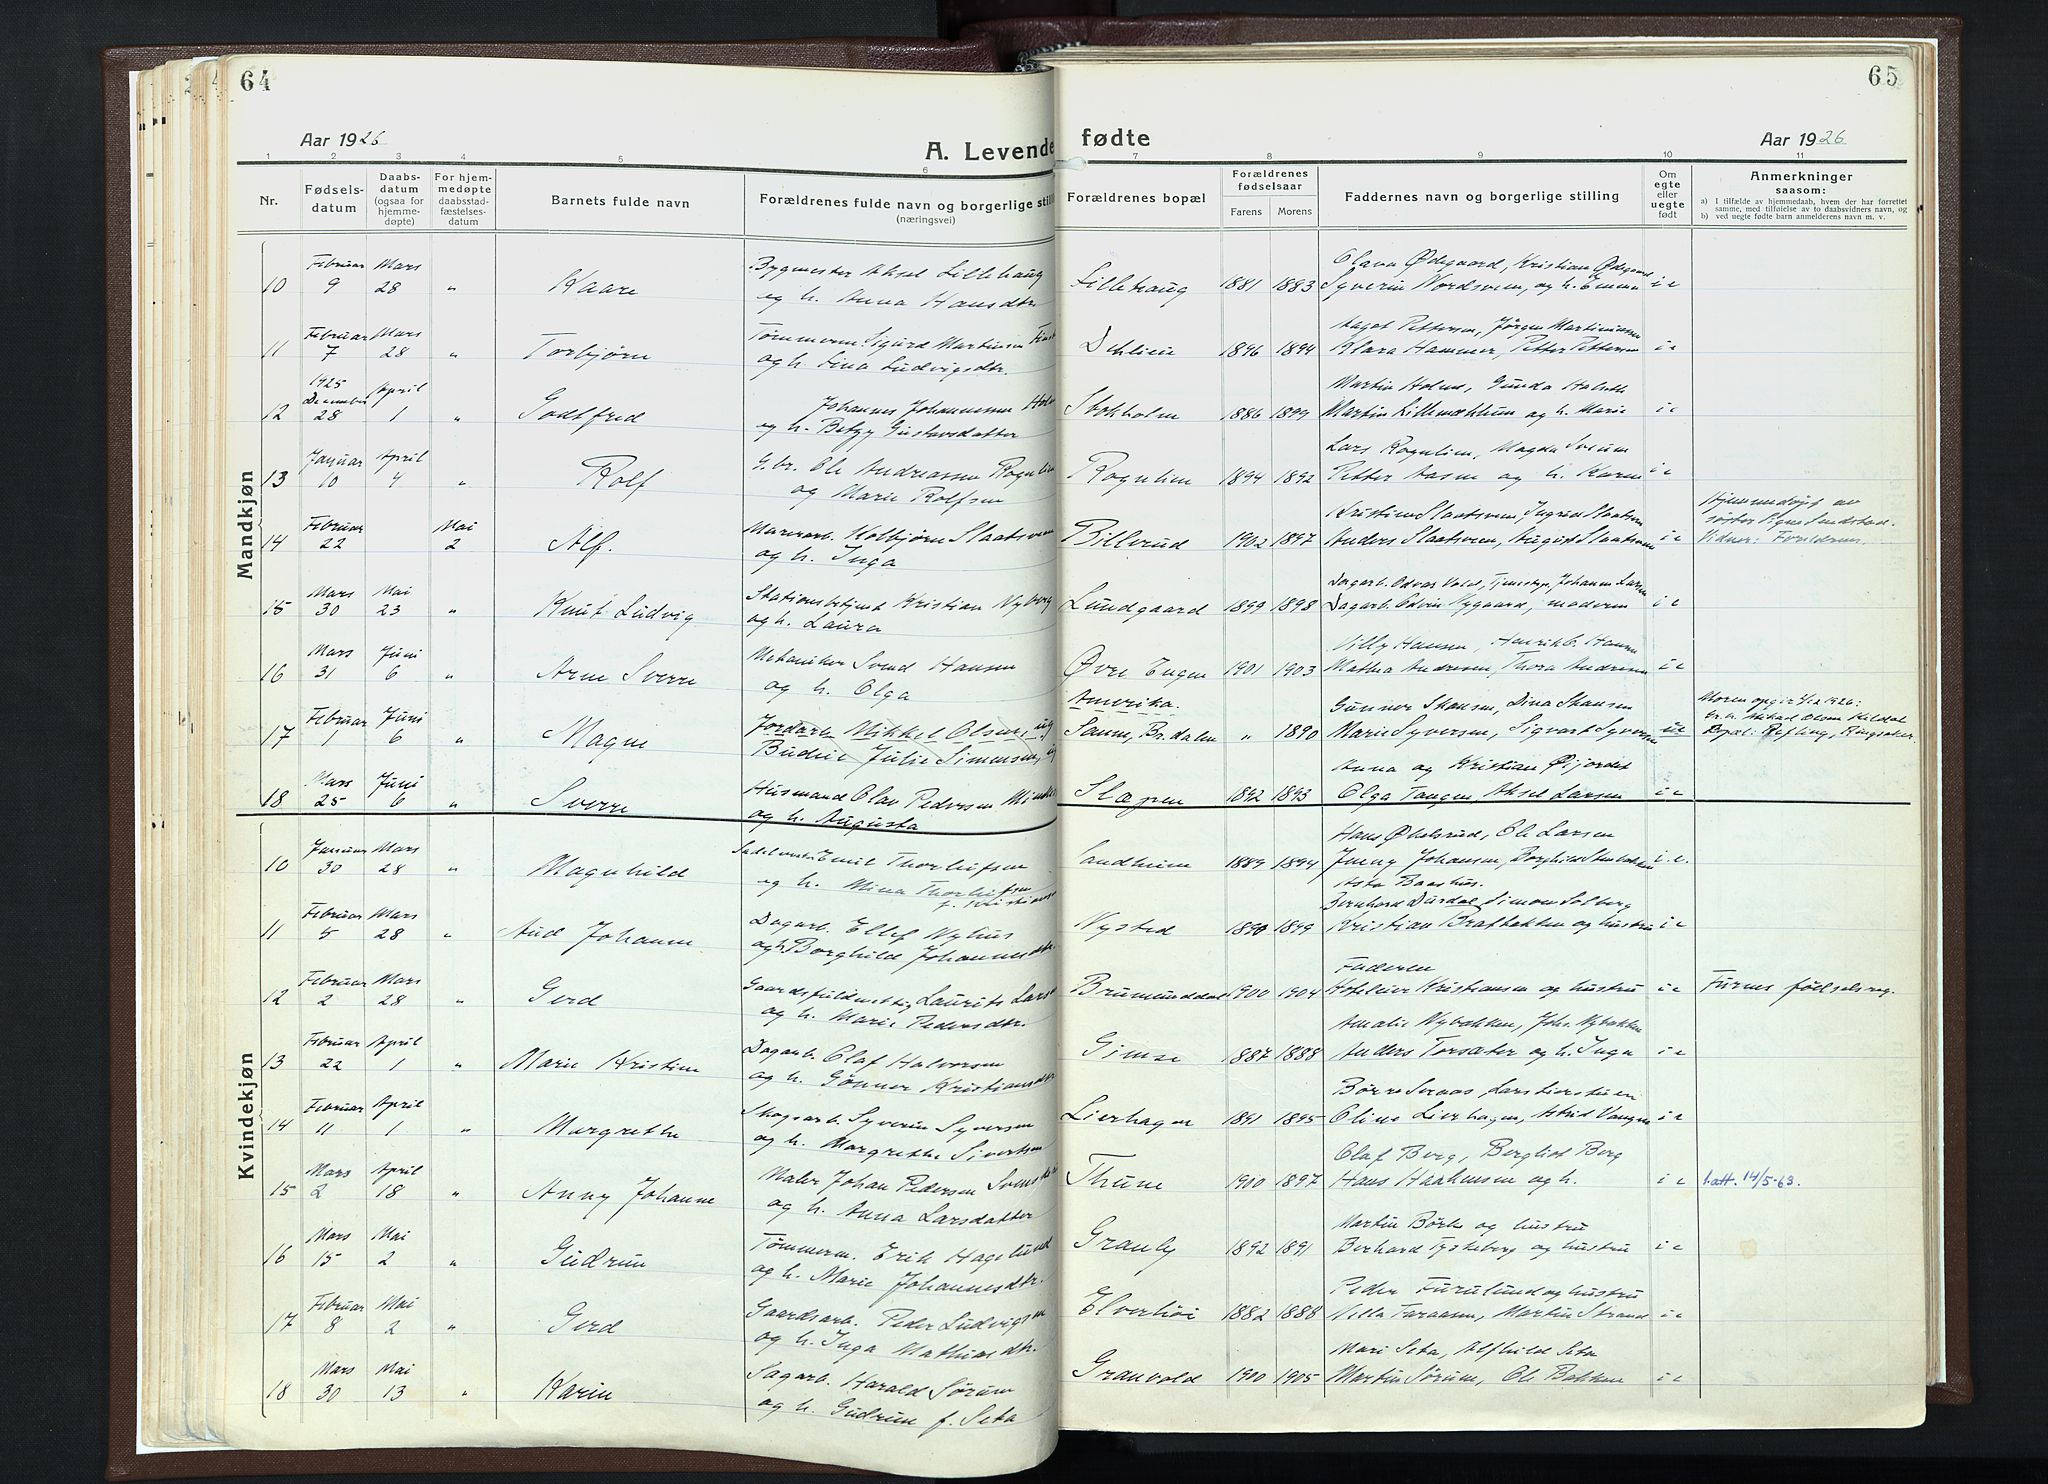 64
65
Aar 1926
A. Levende fødte
Aar 1926
1 2 3 4 5 6 7 8 9 10 11
Nr. Fødselsdatum Daabsdatum (ogsaa for hjemmedøpte) For hjemmedøpte daabsstadfæstelsesdatum Barnets fulde navn Forældrenes fulde navn og borgerlige still (næringsvei) Forældrenes bopæl Forældrenes fødselsaar Farens Morens Faddernes navn og borgerlige stilling Om egte eller uegte født Anmerkninger saasom:
a) I tilfælde av hjemmedaab, hvem der har forrettet samme, med tilføielse av to daabsvidners navn, og
b) ved uegte fødte barn anmelderens navn m. v.
Mandkjøn
10 Februar 9 Mars 28 " Kaare Bygmester Aksel Lillehaug
og h. Anna Hansdtr. Lillehaug 1881 1883 Olava Ødegaard, Kristian Ødegaard
Syverin Nordsveen, og h. Emma i e
11 Februar 7 Mars 28 " Torbjørn Tømmerm. Sigurd Martinsen
og h. Lina Ludvigsdtr. Dehlien 1896 1894 Aagot Pettersen, Jørgen Martinsen
Klara Hammer, Petter Pettersen i e
12 1925 December 28 April 1 " Godtfred Johannes Johannessen Holm
og h. Betzy Gustavsdatter Stokholm 1886 1899 Martin Holm, Gunda Holseth
Martin Lillemækkum og h. Marie i e
13 Januar 10 April 4 " Rolf G.br. Ole Andreassen Rognlien
og Marie Rolfsen Rognlien 1894 1892 Lars Rognlien, Magda Sveum
Petter Aasen og h. Karen i e
14 Februar 22 Mai 2 Alf. Murerarb. Kolbjørn Slaatsveen
og h. Inga Billerud 1902 1897 Kristian Slaatsveen, Ingrid Slaatsveen
Anders Slaatsveen, August Slaatsveen i e Hjemmedøpt av
søster Signe Sundstad.
Vidner: Foreldrene.
15 Mars 30 Mai 23 " Knut Ludvig Stationsbetjent Kristian Nyborg
og h. Laura Lundgaard 1899 1898 Dagarb. Odvar Vold, Johanne Larsen
Dagarb. Odvin Nygaard, moderen i e
16 Mars 31 Juni 6 " Arne Sverre Mekaniker Svend Hansen
og h. Olga Øvre Engen 1901 1903 Villy Hansen, Henrik O. Hansen
Mathea Andresen, Thora Andresen i e
17 Februar 1 Juni 6 " Magne Jordarb. Mikkel Olsen, ug
Budeie Julie Simensen, ug Amerika.
Saum, Br.dalen " 1890 Gunner Skansen, Dina Skansen
Marie Syversen, Sigvart Syversen ue
18 Mars 25 Juni 6 " Sverre Husmand Olav Pedersen
og h. Augusta Slæpen 1892 1893 Anna og Kristian Øijordet
Olga Tangen, Aksel Larsen i e
Kvindekjøn
10 Januar 30 Mars 28 " Magnhild Emil Thorleifsen
og h. Mina Thorleifsen
f. Kristiansen Sandheim 1889 1894 Hans Økelsrud, Ole Larsen
Jenny Johansen, Borghild Stenbakken
Asta Baashus. i. e.
11 Februar 5 Mars 28 " Aud Johanne Dagarb. Ellef Nyhus
og h. Borghild Johannesdtr. Nysted 1890 1899 Bernhard Dusdal Simon Solberg
Kristian Bratbakken og hustru i e
12 Februar 2 Mars 28 " Gerd Gaardsfuldmektig Laurits Larsen
og h. Marie Pedersdtr. Brumunddal 1900 1904 Faderen
Hoteleier Kristiansen og hustru i e Furnes fødselsreg.
13 Februar 22 April 1 " Marie Kristine Dagarb. Olaf Halvorsen
og h. Gønner Kristiansdtr Gimse 1887 1888 Amalie Nybakken, Johs. Nybakken
Anders Torsæter og h. Inga i e
14 Februar 11 April 1 " Margrethe Skogsarb. Syverin Syversen
og h. Margrethe Sivertsen Lierhagen 1891 1895 Børre Svaas, Lars Lierstuen
Oline Lierhagen, Astrid Vangen i e
15 Mars 2 April 18 " Anny Johanne Maler Johan Pedersen
og h. Anna Larsdatter Thune 1900 1897 Olaf Berg, Bergliot Berg
Hans Haakensen og h. i e b.att. 14/5-63.
16 Mars 15 Mai 2 " Gudrun Tømmerm. Erik Hagelund
og h. Marie Johannesdtr. Granly 1892 1891 Martin Børke og hustru
Berhard Tyskeberg og hustru i e
17 Februar 8 Mai 2 " Gerd Gaardsarb. Peder Ludvigsen
og h. Inga Mathiasdtr. Elverhøi 1882 1888 Peder Furulund og hustru
Nilla Faraasen, Martin Strand i e
18 Mars 30 Mai 13 " Karin Sagarb. Harald Sørum
og h. Gudrun f. Seta Granvold 1900 1905 Mari Seta, Alfhild Seta
Martin Sørum, Ole Bakken i e